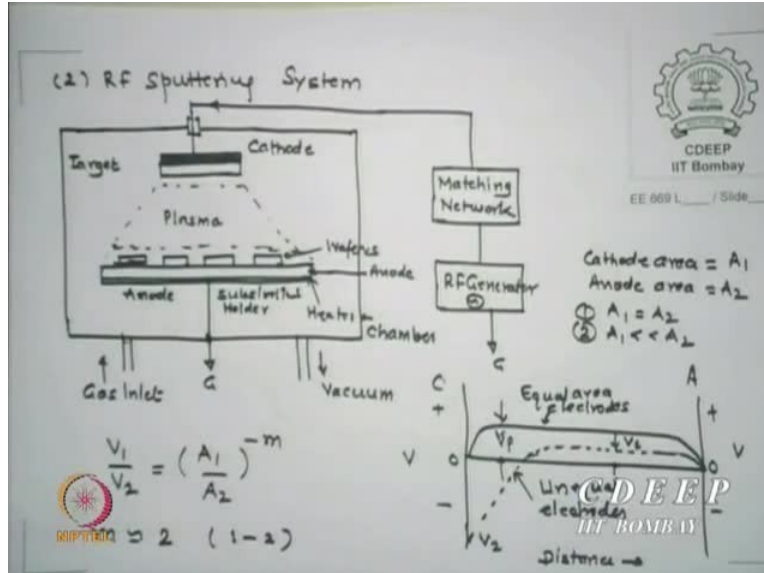 (2) RF Sputtering System
CDEEP
IIT Bombay
EE 669 L____ / Slide__
Target
Cathode
Plasma
Wafers
Anode
Anode
Substrates
Holder
Heater
Chamber
Gas Inlet
G
Vacuum
Matching
Network
RF Generator
G
Cathode area = A1
Anode area = A2
① A1 = A2
② A1 << A2
V1/V2 = (A1/A2)^-m
m ≈ 2 (1-2)
C
A
+
+
Equal area
electrodes
Vp
V
0
0
V
Unequal
electrodes
-
-
V2
Distance →
NPTEL
CDEEP
IIT BOMBAY